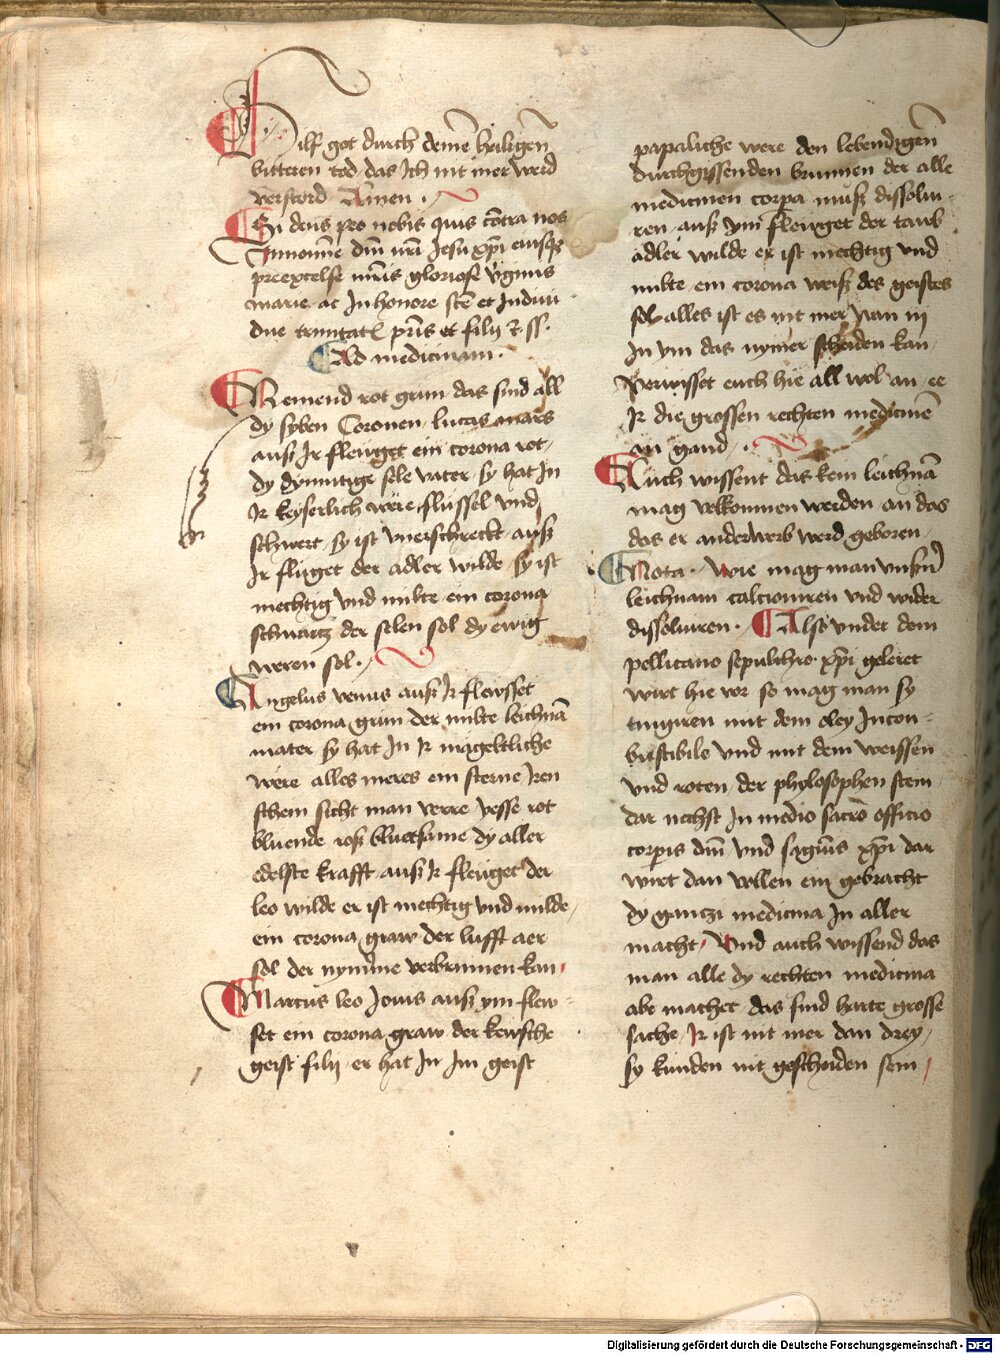 Hilf got durch deinē heiligen̄
bitteren tod das Ich nit mer werd
verstord Amen .
Si deus pro nobis quis cōtra nos
Innoīne dn̄i nr̄i Jesu xp̄i eiusqz
preexcelse mr̄is gloriose v̄ginis
marie ac Inhonore scē et Indiui
due trinitatꝭ pr̄is et filij ⁊ ss.
Ad medicinam .
Nemend rot grun das sind all
dy syben Coronen lucas mars
auß Ir fleuget ein corona rot
dy dymutige sele vater sy hat In
Ir keyserlich were slussel vnd
schwert sy ist vnerschreckt auß
Ir fluget der adler wilde sy ist
mechtig vnd milte ein corona
schwartz der selen sol dy ewig
weren sol .
Angelus venus auß Ir flewsset
ein corona grun der milte leichnā
mater sy hat In Ir mageltliche
were alles meres ein sterne Iren
schein sicht man verre vesse rot
bluende roß bluetsame dy aller
edelste krafft auß Ir fleuget der
leo wilde er ist mechtig vnd milde
ein corona graw der lufft aer
sol der nym̄me verbrinnen kan
Marcus leo Jouis auß ym flew
set ein corona graw der kewsche
geist filij er hat In Im geist
papaliche were den lebendigen̄
durchgissenden brunnen der alle
medicinen corpa muß dissolui
ren auß ym fleuget der taub
adler wilde er ist mechtig vnd
milte ein corona weiß des geistes
sol alles ist es nit mer wan iij
In ym das nymer scheiden kan
Verwisset euch hie all wol an ee
Ir die grossen rechten medicinē
an gand .
Auch wissent das kein leichnā
mag volkommen werden an das
das er anderwerb werd geboren
Nota . wie mag man vnsern̄
leichnam calcioniren vnd wider
dissoluiren . Also vnder dem
pellicano sepulchro xp̄i geleret
wirt hie vor so mag man sy
tingiren mit dem oley Incon
bustibile vnd mit dem weissen
vnd roten der phylosophen stein
dar nechst In medio sacro officio
corpis dn̄i vnd sagnīs xp̄i dar
wirt dan vollen ein gebracht
dy gantzi medicina In aller
macht Vnd auch wissend das
man alle dy rechten medicina
abe machet das sind harte grosse
sache Ir ist nit mer dan drey
sy kunden nit gescheiden sein
Digitalisierung gefördert durch die Deutsche Forschungsgemeinschaft - DFG